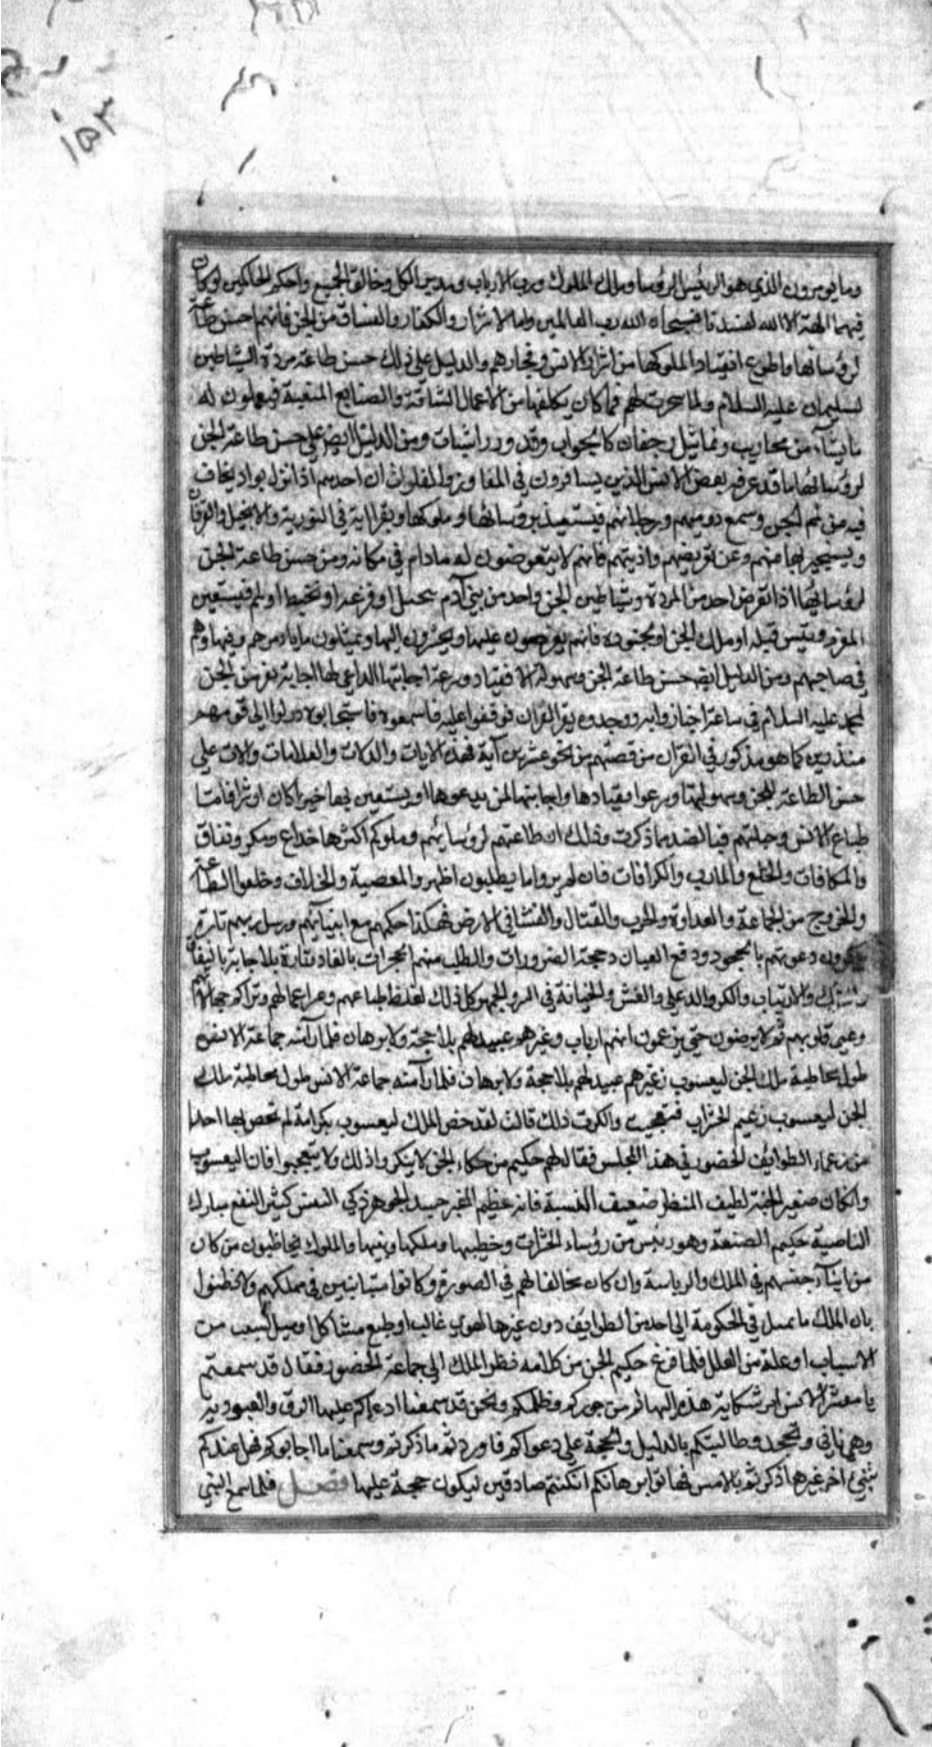 ١٥٣
وما يومرون الذي هو الرئيس الرؤسا وملك الملوك ورب الارباب ومدبر الكل وخالق الجميع واحكم الحاكمين لو كان
فيهما الهة الا الله لفسدتا فسبحان الله رب العالمين واما الاشرار والكفار والفساق من الجن فانهم احسن طاعة
لرؤسائها واطوع انقيادا لملوكها من اشرار الانس وفجارهم والدليل على ذلك حسن طاعة مردة الشياطين
لسليمان عليه السلام ولما سخرت لهم فما كان يكلفها من الاعمال الشاقة والصنايع المتعبة فيعملون له
ما يشآء من محاريب وتماثيل وجفان كالجواب وقدور راسيات ومن الدليل ايض على حسن طاعة الجن
لرؤسائها ما قد عرفه بعض الانس الذين يسافرون في المفاوز والفلوات ان احدهم اذا نزل بواد يخاف
فيه من الجن وسمع دويهم وزجلاتهم فيستعيذ برؤسائها وملوكها ويقرا اية في التورية والانجيل والفرقان
ويستجير بها منهم وعن تعريضهم واذيتهم فانهم لا يتعرضون له ما دام في مكانه ومن حسن طاعة الجن
لرؤسائها اذا تعرض احد من المردة وشياطين الجن واحد من بني آدم بخبل او فزعه او تخبط او لمم فيستعين
المعزم ورئيس قبيله او ملك الجن او بجنوده فانهم يعرضون عليها ويحشرون اليها ويمتثلون ما يامرهم وينهاهم
في صاحبهم ومن الدليل ايض حسن طاعة الجن وسهولة الانقياد وسرعة اجابتها الداعي لها اجابة نفر من الجن
لمحمد عليه السلام في ساعة اجتاز وابه ووجدوه يقرا القران فوقفوا عليه فاسمعوه فاستجابوه وولوا الى قومهم
منذرين كما هو مذكور في القران من قصتهم من نحو عشرين آية فهذه الايات والدلات والعلامات دلات على
حسن الطاعة للجن وسهولتها وسرعوا بقيادها واجابتها لمن يدعوها او يستعين بها خيرا كان او شرا فاما
طباع الانس وجبلتهم فبالضد مما ذكرت وذلك ان طاعتهم لرؤسائهم وملوكهم اكثرها خداع ومكر ونفاق
والمكافات والخلع والمارب والكرافات فان لم يروا ما يطلبون اظهر والمعصية والخلاف وخلعوا الطاعة
والخروج من الجماعة والعداوة والحرب والقتال والفساد في الارض فهكذا حكمهم مع انبيائهم ورسل ربهم تارة
ينكرون دعوتهم بالجحود ودفع العيان وحجة الضرورات والطلب منهم المعجزات بالعناد وتارة بلاجابة بالنفاق
والشك والارتياب والمكر والدغلي والغش والخيانة في السر والجهر كل ذلك لغلظ طباعهم وعر اعمالهم وتراكم جهالاتهم
وعمى قلوبهم ثم لا يرضون حتى يزعمون انهم ارباب وغيرهم عبيد لهم بلا حجة ولا برهان فلما رأت جماعة الانس
طول مخاطبة ملك الجن ليعسوب زغيرهم عبيد لهم بلا حجة ولا برهان فلما رأت جماعة الانس طول مخاطبة ملك
الجن ليعسوب زعيم الحشرات فتعجبت وانكرت ذلك قالت لقد خص الملك ليعسوب بكرامة لم تخص بها احدا
من زعماء الطوايف الحضور في هذا المجلس فقال لهم حكيم من حكماء الجن لا ينكروا ذلك ولا يتعجبوا فان اليعسوب
وان كان صغير الجثة لطيف المنظر ضعيف البنية فانه عظيم المخبر جيد الجوهر ذكي النفس كثير النفع مبارك
الناصية حكيم الصنعة وهو رئيس من رؤساء الحشرات وخطيبها وملكها ونبيها والملوك يخاطبون من كان
من ابناء جنسهم في الملك والرياسة وان كان مخالفا لهم في الصورة وكانوا متباينين في مملكهم ولا تظنوا
بان الملك ما يميل في الحكومة الى احد من الطوايف دون غيرها لهوى غالب او طبع مشاكل او ميل لسبب من
الاسباب او علة من العلل فلما فرغ حكيم الجن من كلامه فنظر الملك الى جماعة الحضور فقال قد سمعتم
يا معشر الانس اين شكاية هذه البهائم من جوركم وظلمكم ونحن قد سمعنا ادعاكم عليها الرق والعبودية
وهي تابى وتجحد وطالبتكم بالدليل والحجة على دعواكم فاوردتم ما ذكرتم وسمعنا ما اجابوكم فهل عندكم
شيئ اخر غير ما ذكرتم بالامس فهاتوا برهانكم ان كنتم صادقين ليكون حجة عليها فصل فلما سمع النبي